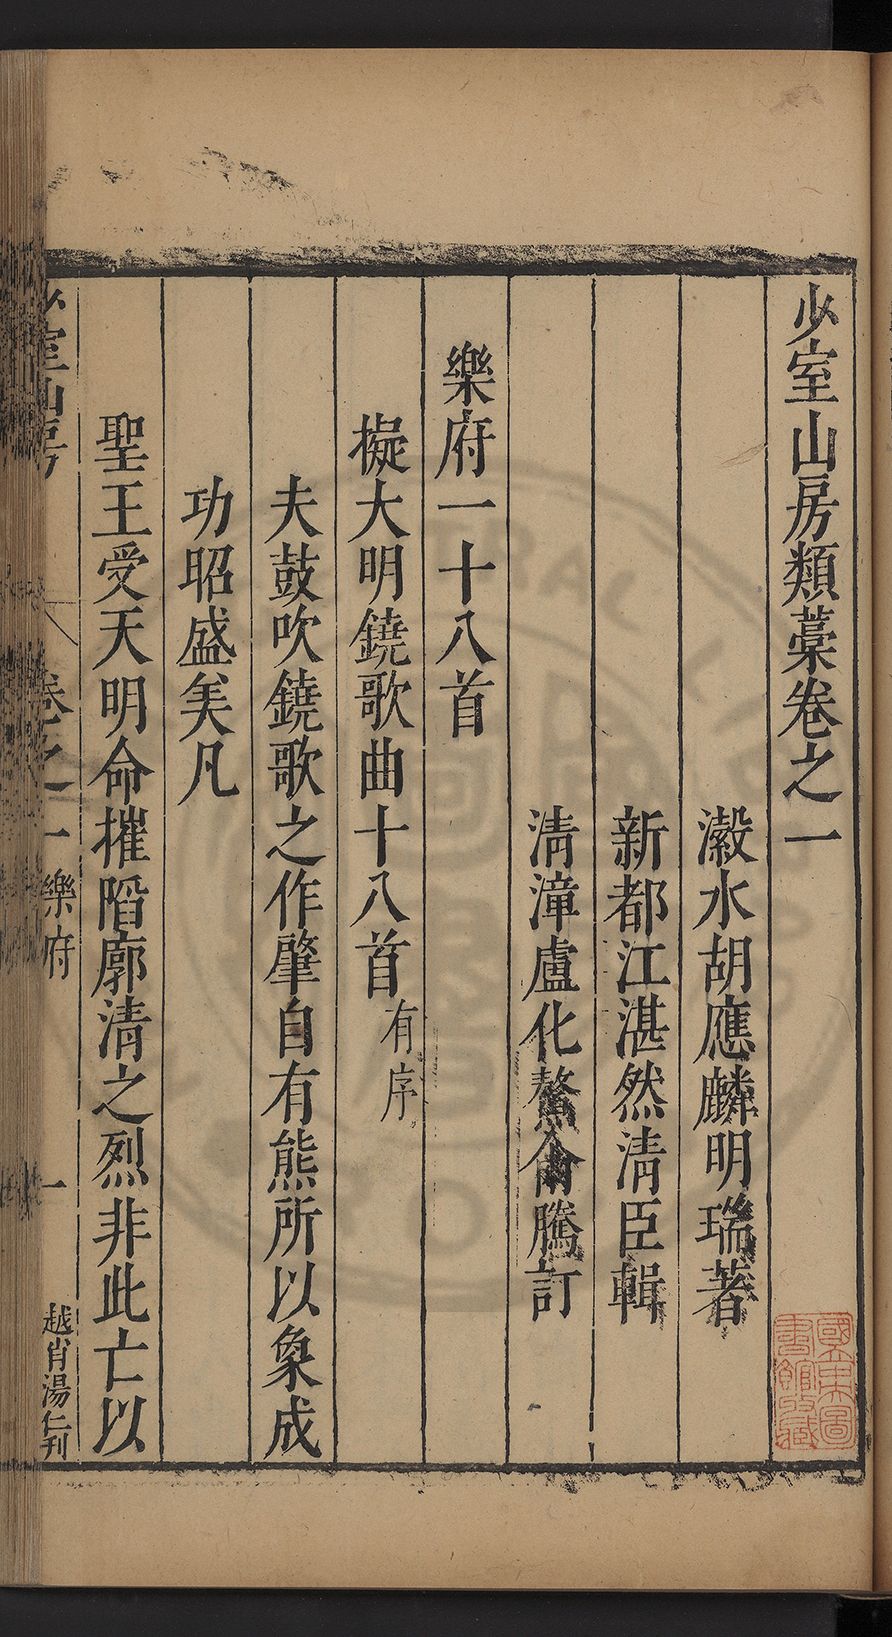 少室山房類藁卷之一
瀫水胡應麟明瑞著
新都江湛然清臣輯
淸漳盧化鰲侖騰訂
樂府一十八首
擬大明鐃歌曲十八首 有序
夫鼓吹鐃歌之作肇自有熊所以象成
功昭盛美凡
聖王受天明命摧䧟廓清之烈非此亡以
少室山房 卷之一 樂府 一 越肖湯仁刊
國立中央圖書館收藏